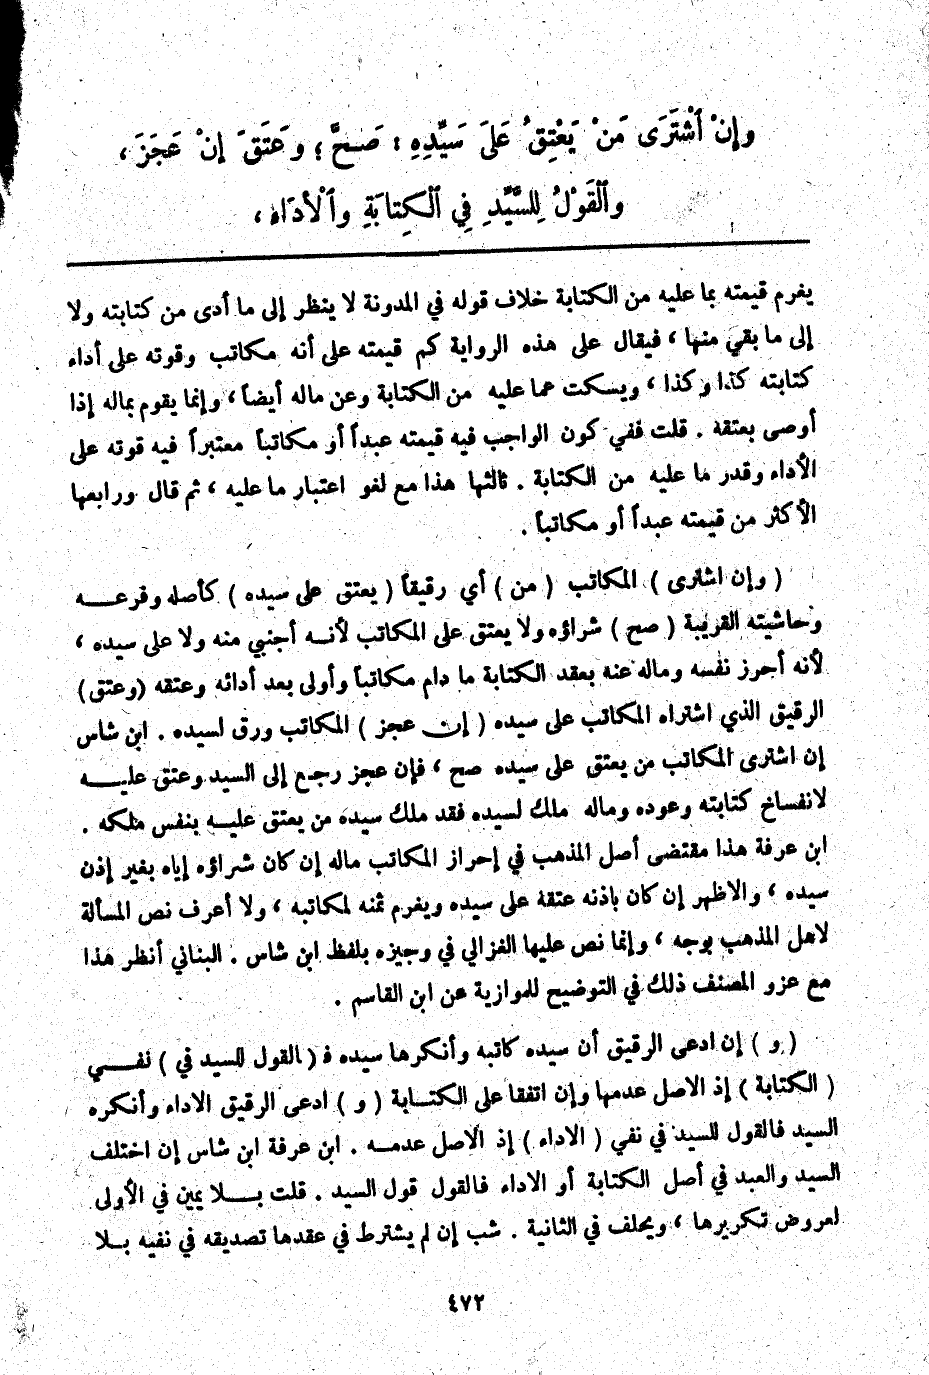 وإِنْ ٱشْتَرَى مَنْ يَعْتِقُ عَلَى سَيِّدِهِ : صَحَّ ؛ وعَتَقَ إِنْ عَجَزَ ،
وٱلْقَوْلُ لِلسَّيِّدِ فِي ٱلْكِتابَةِ وٱلْأَدَاءِ ،
يغرم قيمته بما عليه من الكتابة خلاف قوله في المدونة لا ينظر إلى ما أدى من كتابته ولا
إلى ما بقي منها ، فيقال على هذه الرواية كم قيمته على أنه مكاتب وقوته على أداء
كتابته كذا وكذا ، ويسكت عما عليه من الكتابة وعن ماله أيضاً ، وإنما يقوم بماله إذا
أوصى بعتقه . قلت ففي كون الواجب فيه قيمته عبداً أو مكاتباً معتبراً فيه قوته على
الأداء وقدر ما عليه من الكتابة . ثالثها هذا مع لغو اعتبار ما عليه ، ثم قال ورابعها
الأكثر من قيمته عبداً أو مكاتباً .
( وإن اشترى ) المكاتب ( من ) أي رقيقاً ( يعتق على سيده ) كأصله وفرعـــه
وحاشيته القريبة ( صح ) شراؤه ولا يعتق على المكاتب لأنــه أجنبي منه ولا على سيده ،
لأنه أحرز نفسه وماله عنه بعقد الكتابة ما دام مكاتباً وأولى بعد أدائه وعتقه (وعتق)
الرقيق الذي اشتراه المكاتب على سيده ( إن عجز ) المكاتب ورق لسيده . ابن شاس
إن اشترى المكاتب من يعتق على سيده صح ، فإن عجز رجع إلى السيد وعتق عليــــه
لانفساخ كتابته وعوده وماله ملك لسيده فقد ملك سيده من يعتق عليــه بنفس ملكه .
ابن عرفة هذا مقتضى أصل المذهب في إحراز المكاتب ماله إن كان شراؤه إياه بغير إذن
سيده ، والاظهر إن كان باذنه عتقه على سيده ويغرم ثمنه لمكاتبه ، ولا أعرف نص المسألة
لاهل المذهب بوجه ، وإنما نص عليها الغزالي في وجيزه بلفظ ابن شاس . البناني أنظر هذا
مع عزو المصنف ذلك في التوضيح للموازية عن ابن القاسم .
( و ) إن ادعى الرقيق أن سيده كاتبه وأنكرها سيده فـ ( القول للسيد في ) نفـــي
( الكتابة ) إذ الاصل عدمها وإن اتفقا على الكتــابة ( و ) ادعى الرقيق الاداء وأنكره
السيد فالقول للسيد في نفي ( الاداء ) إذ الاصل عدمــه . ابن عرفة ابن شاس إن اختلف
السيد والعبد في أصل الكتابة أو الاداء فالقول قول السيد . قلت بـــلا يمين في الأولى
لعروض تكريرها ، ويحلف في الثانية . شب إن لم يشترط في عقدها تصديقه في نفيه بــلا
٤٧٢